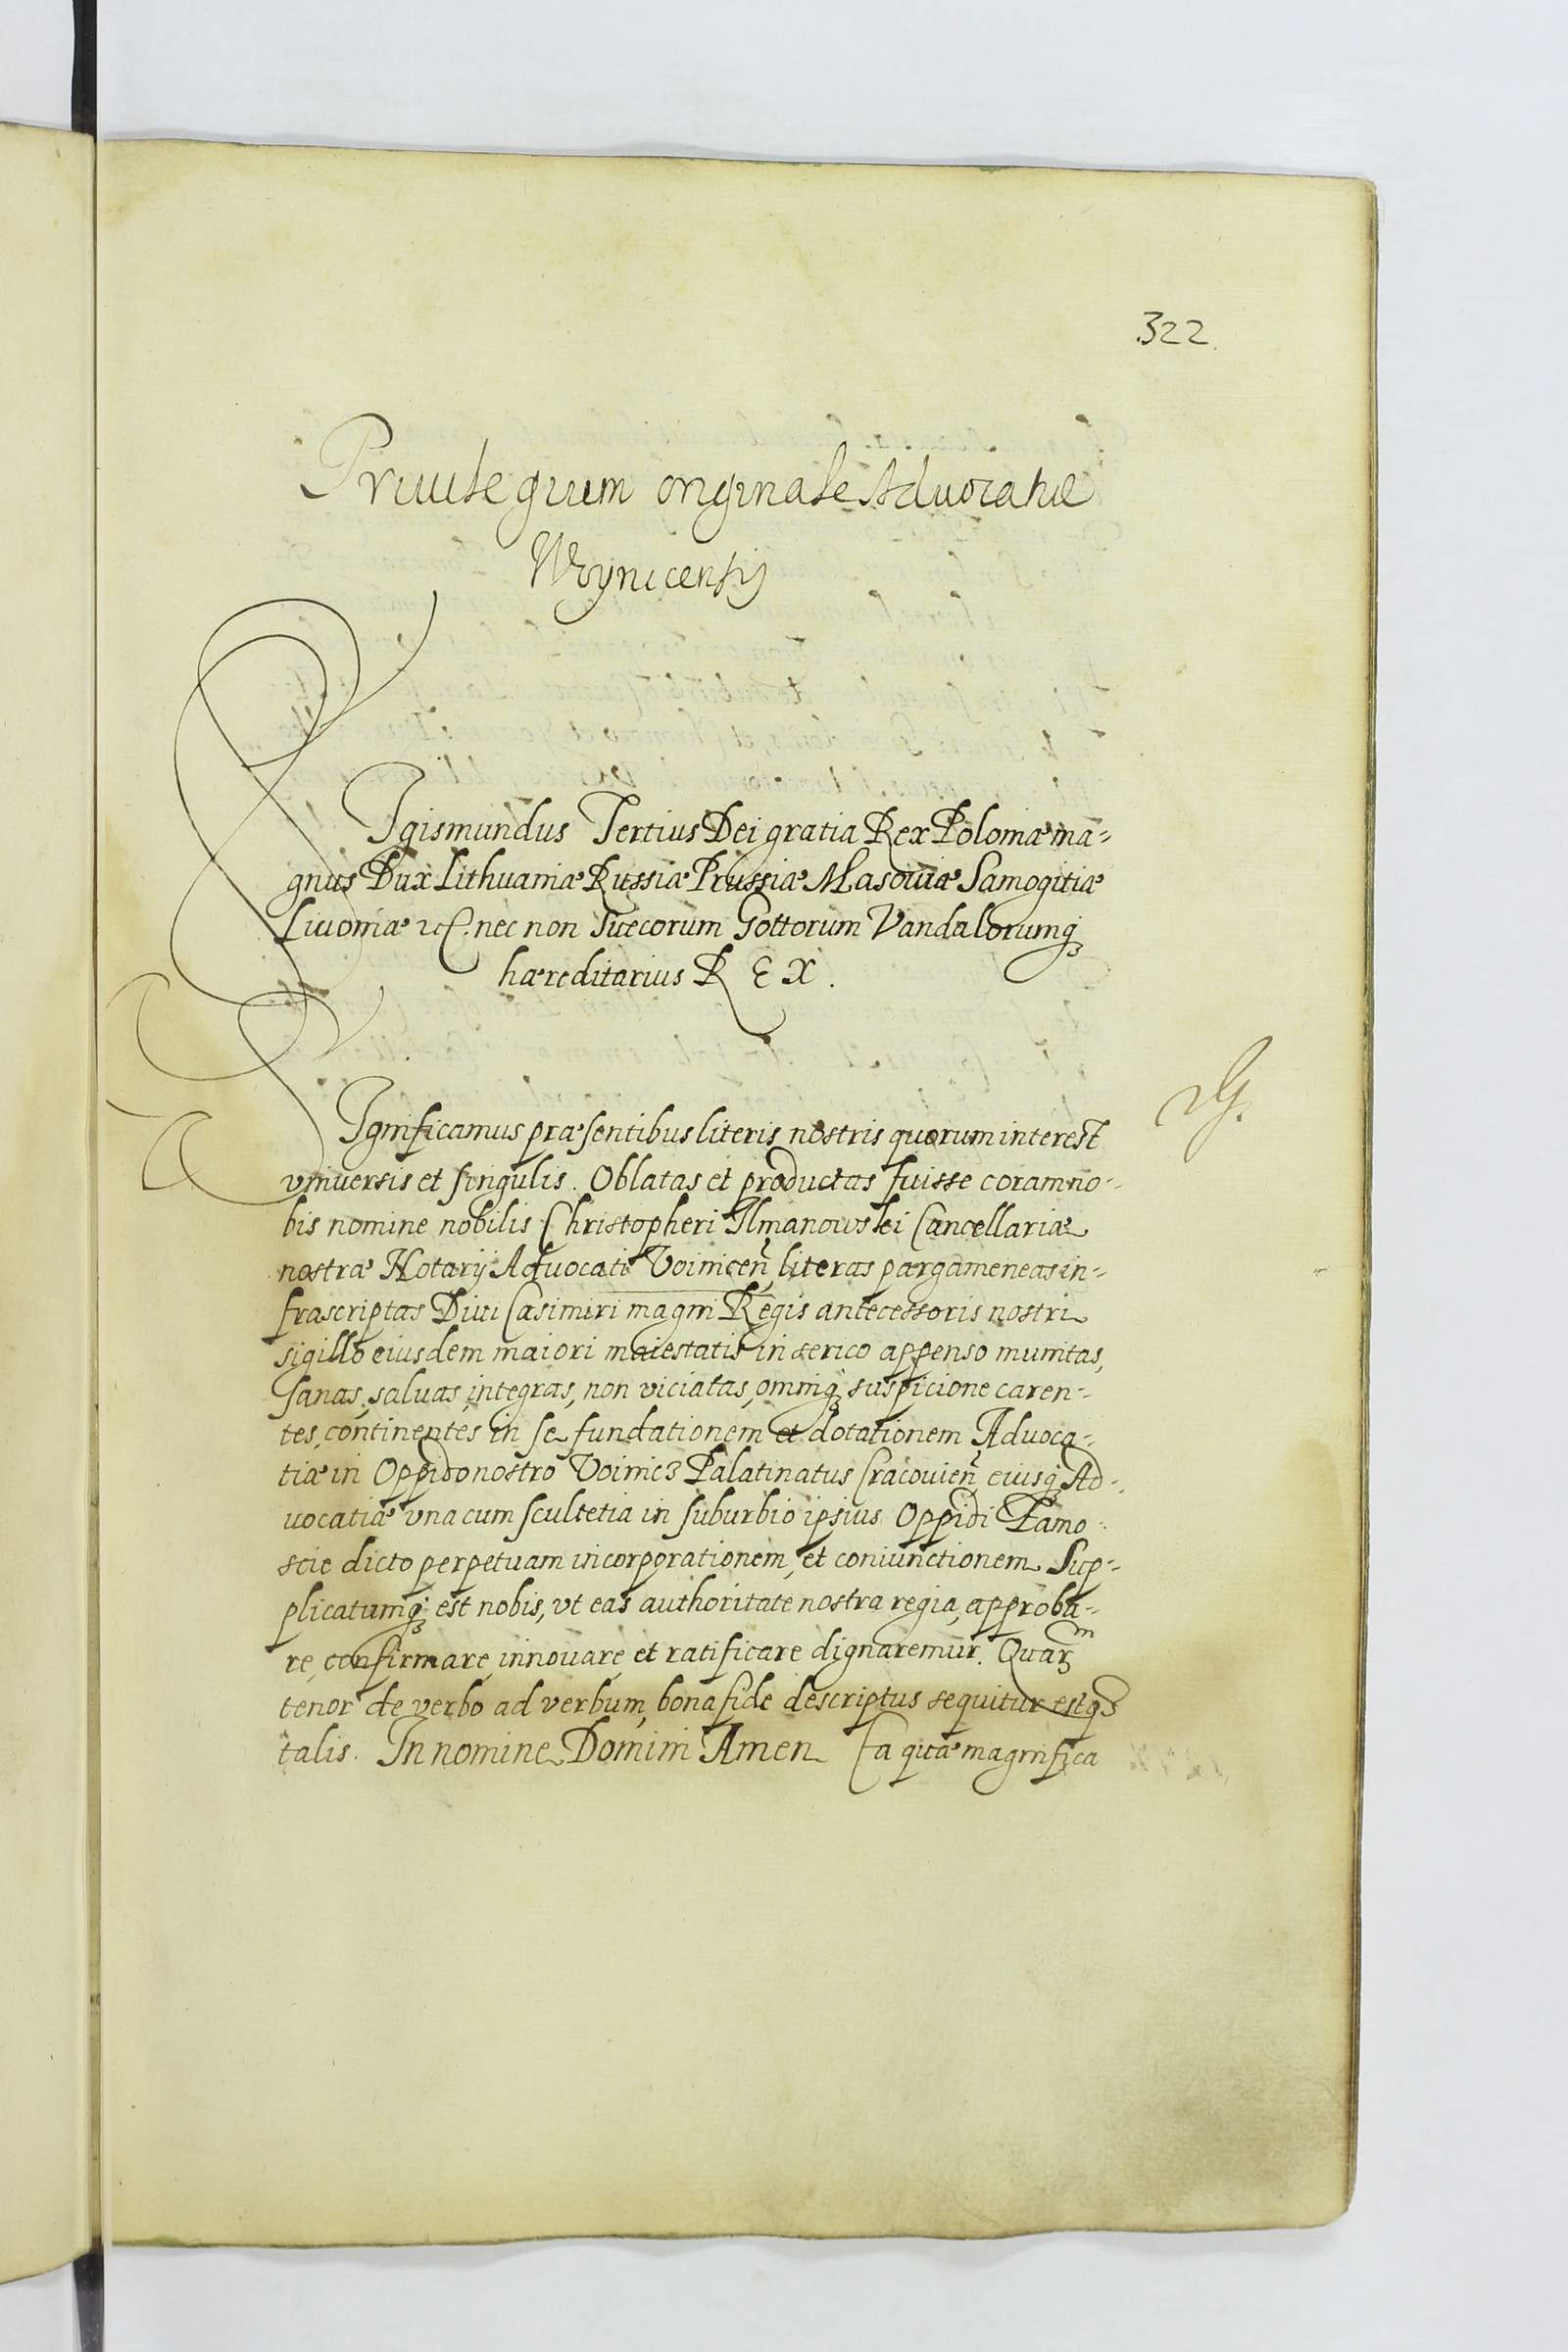 322.
Priuilegium originale Aduocatiæ
Woynicensis
Sigismundus Tertius Dei gratia Rex Poloniæ ma-
gnus Dux Lithuaniæ Russiæ Prussiæ Masouiæ Samogitiæ
Liuoniæ etc. nec non Suecorum Gottorum Vandalorumq₃
hæreditarius REX.
Significamus præsentibus literis nostris quorum interest
vniuersis et singulis. Oblatas et productas fuisse coram no-
bis nomine nobilis Christopheri Ilmanowski Cancellariæ
nostræ Notarij Aduocati Voinicen̄, literas pargameneas in-
frascriptas Diui Casimiri magni Regis antecessoris nostri
sigillo eiusdem maiori maiestatis in serico appenso munitas,
sanas, saluas, integras, non viciatas, omniq₃ suspicione caren-
tes, continentes in se fundationem et dotationem Aduoca-
tiæ in Oppido nostro Voinicz Palatinatus Cracouien̄, eiusq₃ Ad-
uocatiæ vna cum scultetia in suburbio ipsius Oppidi Zamo-
scie dicto perpetuam incorporationem, et coniunctionem. Sup-
plicatumq₃ est nobis, vt eas authoritate nostra regia, approba-
re, confirmare, innouare et ratificare dignaremur. Quarꝫᵐ
tenor de verbo ad verbum, bona fide descriptus sequitur estq₃
talis. In nomine Domini Amen. Ea quæ magnifica